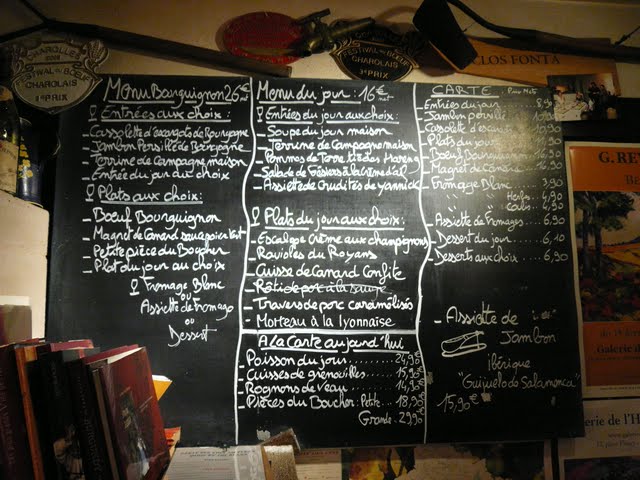 CHAROLLES
FESTIVAL DU BOEUF
CHAROLAIS
1er PRIX
FESTIVAL DU BOEUF
CHAROLAIS
1er PRIX
CLOS FONTA
Menu Bourguignon 26€ net
Entrées aux choix:
- Cassolette d'escargots de Bourgogne
- Jambon Persillé de Bourgogne
- Terrine de Campagne maison
- Entrée du jour au choix
Plats aux choix:
- Bœuf Bourguignon
- Magret de Canard sauce poivre vert
- Petite pièce du Boucher
- Plat du jour au choix
Fromage Blanc
ou
Assiette de Fromage
ou
Dessert
Menu du jour: 16€ net
Entrées du jour aux choix:
- Soupe du jour maison
- Terrine de Campagne maison
- Pommes de Terre tièdes Hareng
- Salade de Gésiers à la crème d'ail
- Assiette de Crudités de Yannick
Plats du jour aux choix:
- Escalope Crème aux champignons
- Ravioles du Royans
- Cuisse de Canard Confite
- Rôti de porc à la sauge
- Travers de porc caramélisés
- Morteau à la lyonnaise
A La Carte aujourd'hui
- Poisson du jour 24,90€
- Cuisses de grenouilles 15,90€
- Rognons de Veau 14,90€
- Pièces du Boucher: Petite 18,90€
Grande 29,90€
CARTE Prix Nets
- Entrées du jour 8,90
- Jambon persillé 10,90
- Cassolette d'escargots 10,90
- Plats du jour
- Bœuf Bourguignon 16,90
- Magret de Canard 16,90
- Fromage Blanc 3,90
" " Herbes 4,90
" " Coulis 4,90
- Assiette de Fromages 6,90
- Dessert du jour 6,10
- Desserts aux choix 6,90
- Assiette de
Jambon
ibérique
"Guijuelo de Salamanca"
15,90€
G. RE
Galerie d
erie de l'H